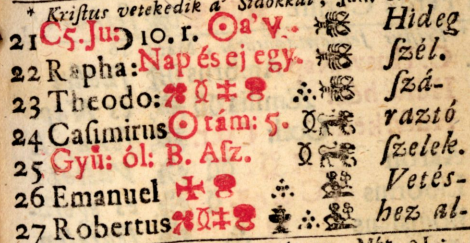 * Kriſtus vetekedik a' Sidókkal,
21 C5. Ju: 10. r. ☉ a' V. Hideg
22 Rapha: Nap és ej egy. ſzél.
23 Theodo: ſzá-
24 Caſimirus ☉ tám: 5. raztó
25 Gyü: ól: B. Aſz. ſzelek.
26 Emanuel Vetés-
27 Robertus hez al-